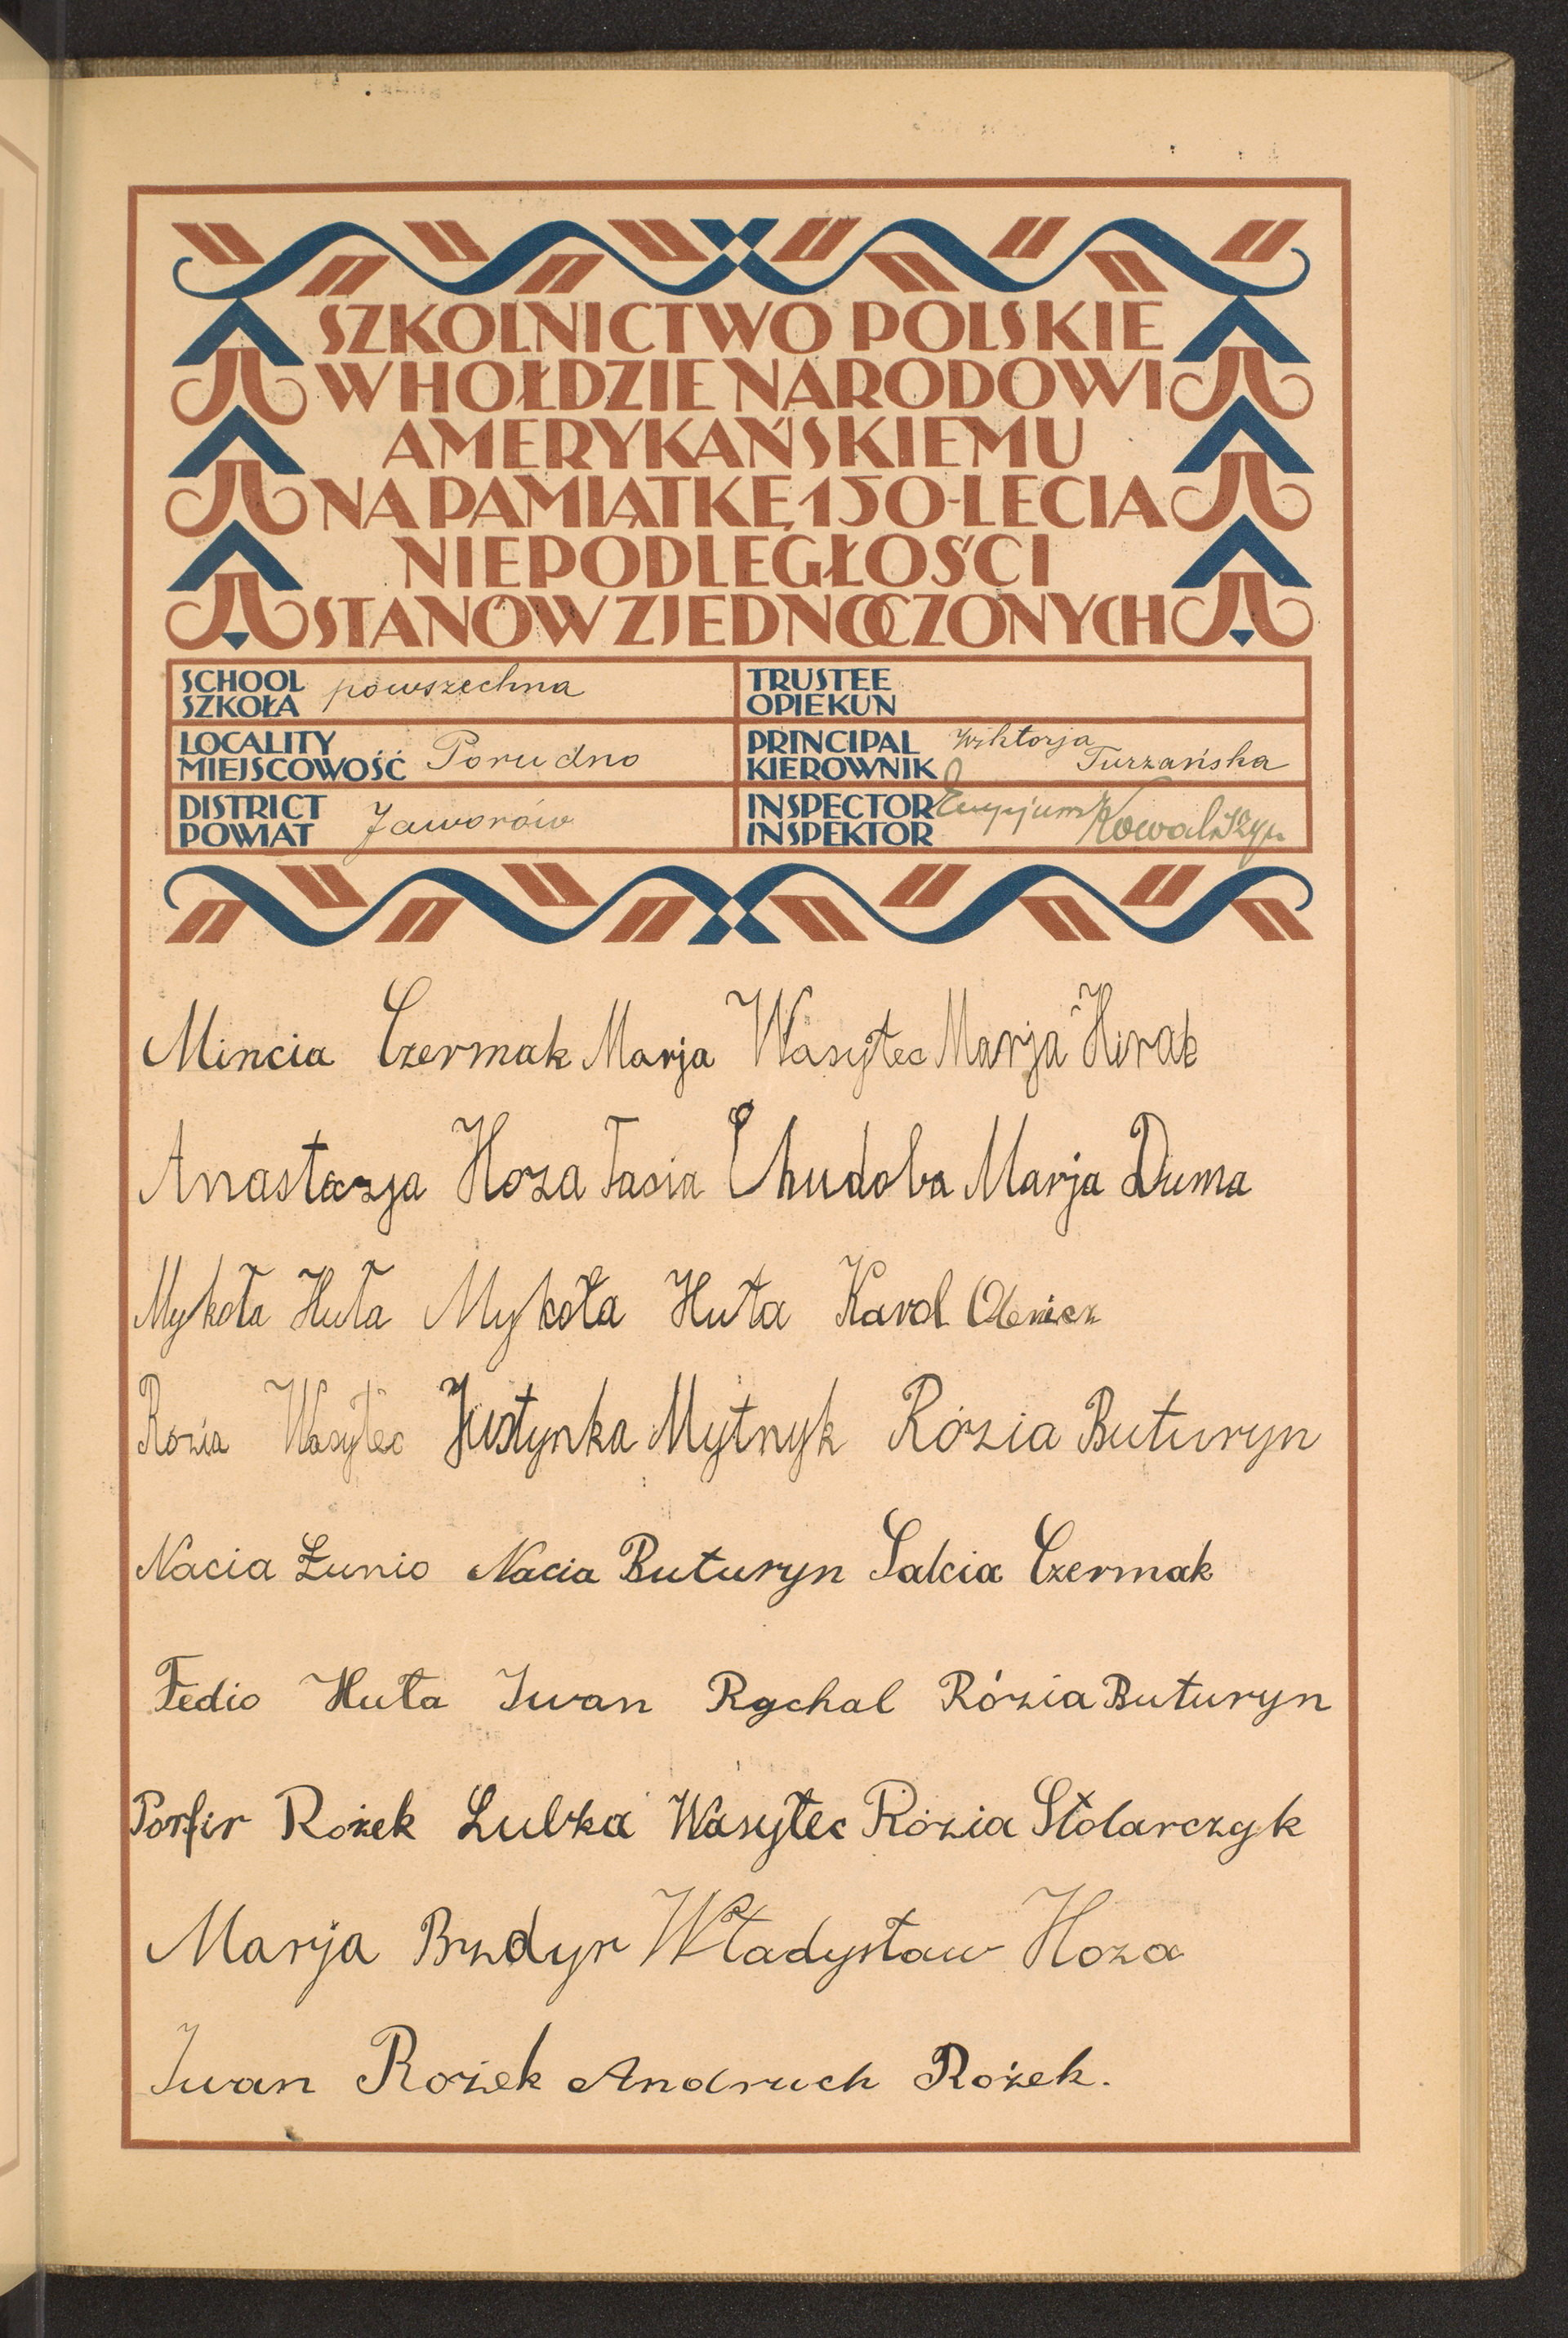 SZKOLNICTWO POLSKIE
W HOŁDZIE NARODOWI
AMERYKAŃSKIEMU
NA PAMIĄTKĘ 150-LECIA
NIEPODLEGŁOŚCI
STANÓW ZJEDNOCZONYCH
SCHOOL
SZKOŁA powszechna
TRUSTEE
OPIEKUN
LOCALITY
MIEJSCOWOŚĆ Porudno
PRINCIPAL
KIEROWNIK Wiktorja Turzańska
DISTRICT
POWIAT Jaworów
INSPECTOR
INSPEKTOR
Mincia Czermak Marja Wasyłec Marja Hirak
Anastazja Hoza Tasia Chudoba Marja Duma
Mykoła Huta Mykoła Huta Karol
Rozia Wasyłec Justynka Mytnyk Rózia Buturyn
Nacia Łunio Nacia Buturyn Salcia Czermak
Fedio Huta Iwan Rychal Rózia Buturyn
Porfir Rożek Lubka Wasyłec Rózia Stolarczyk
Marja Bzdyr Władysław Hoza
Iwan Rożek Andruch Rożek.